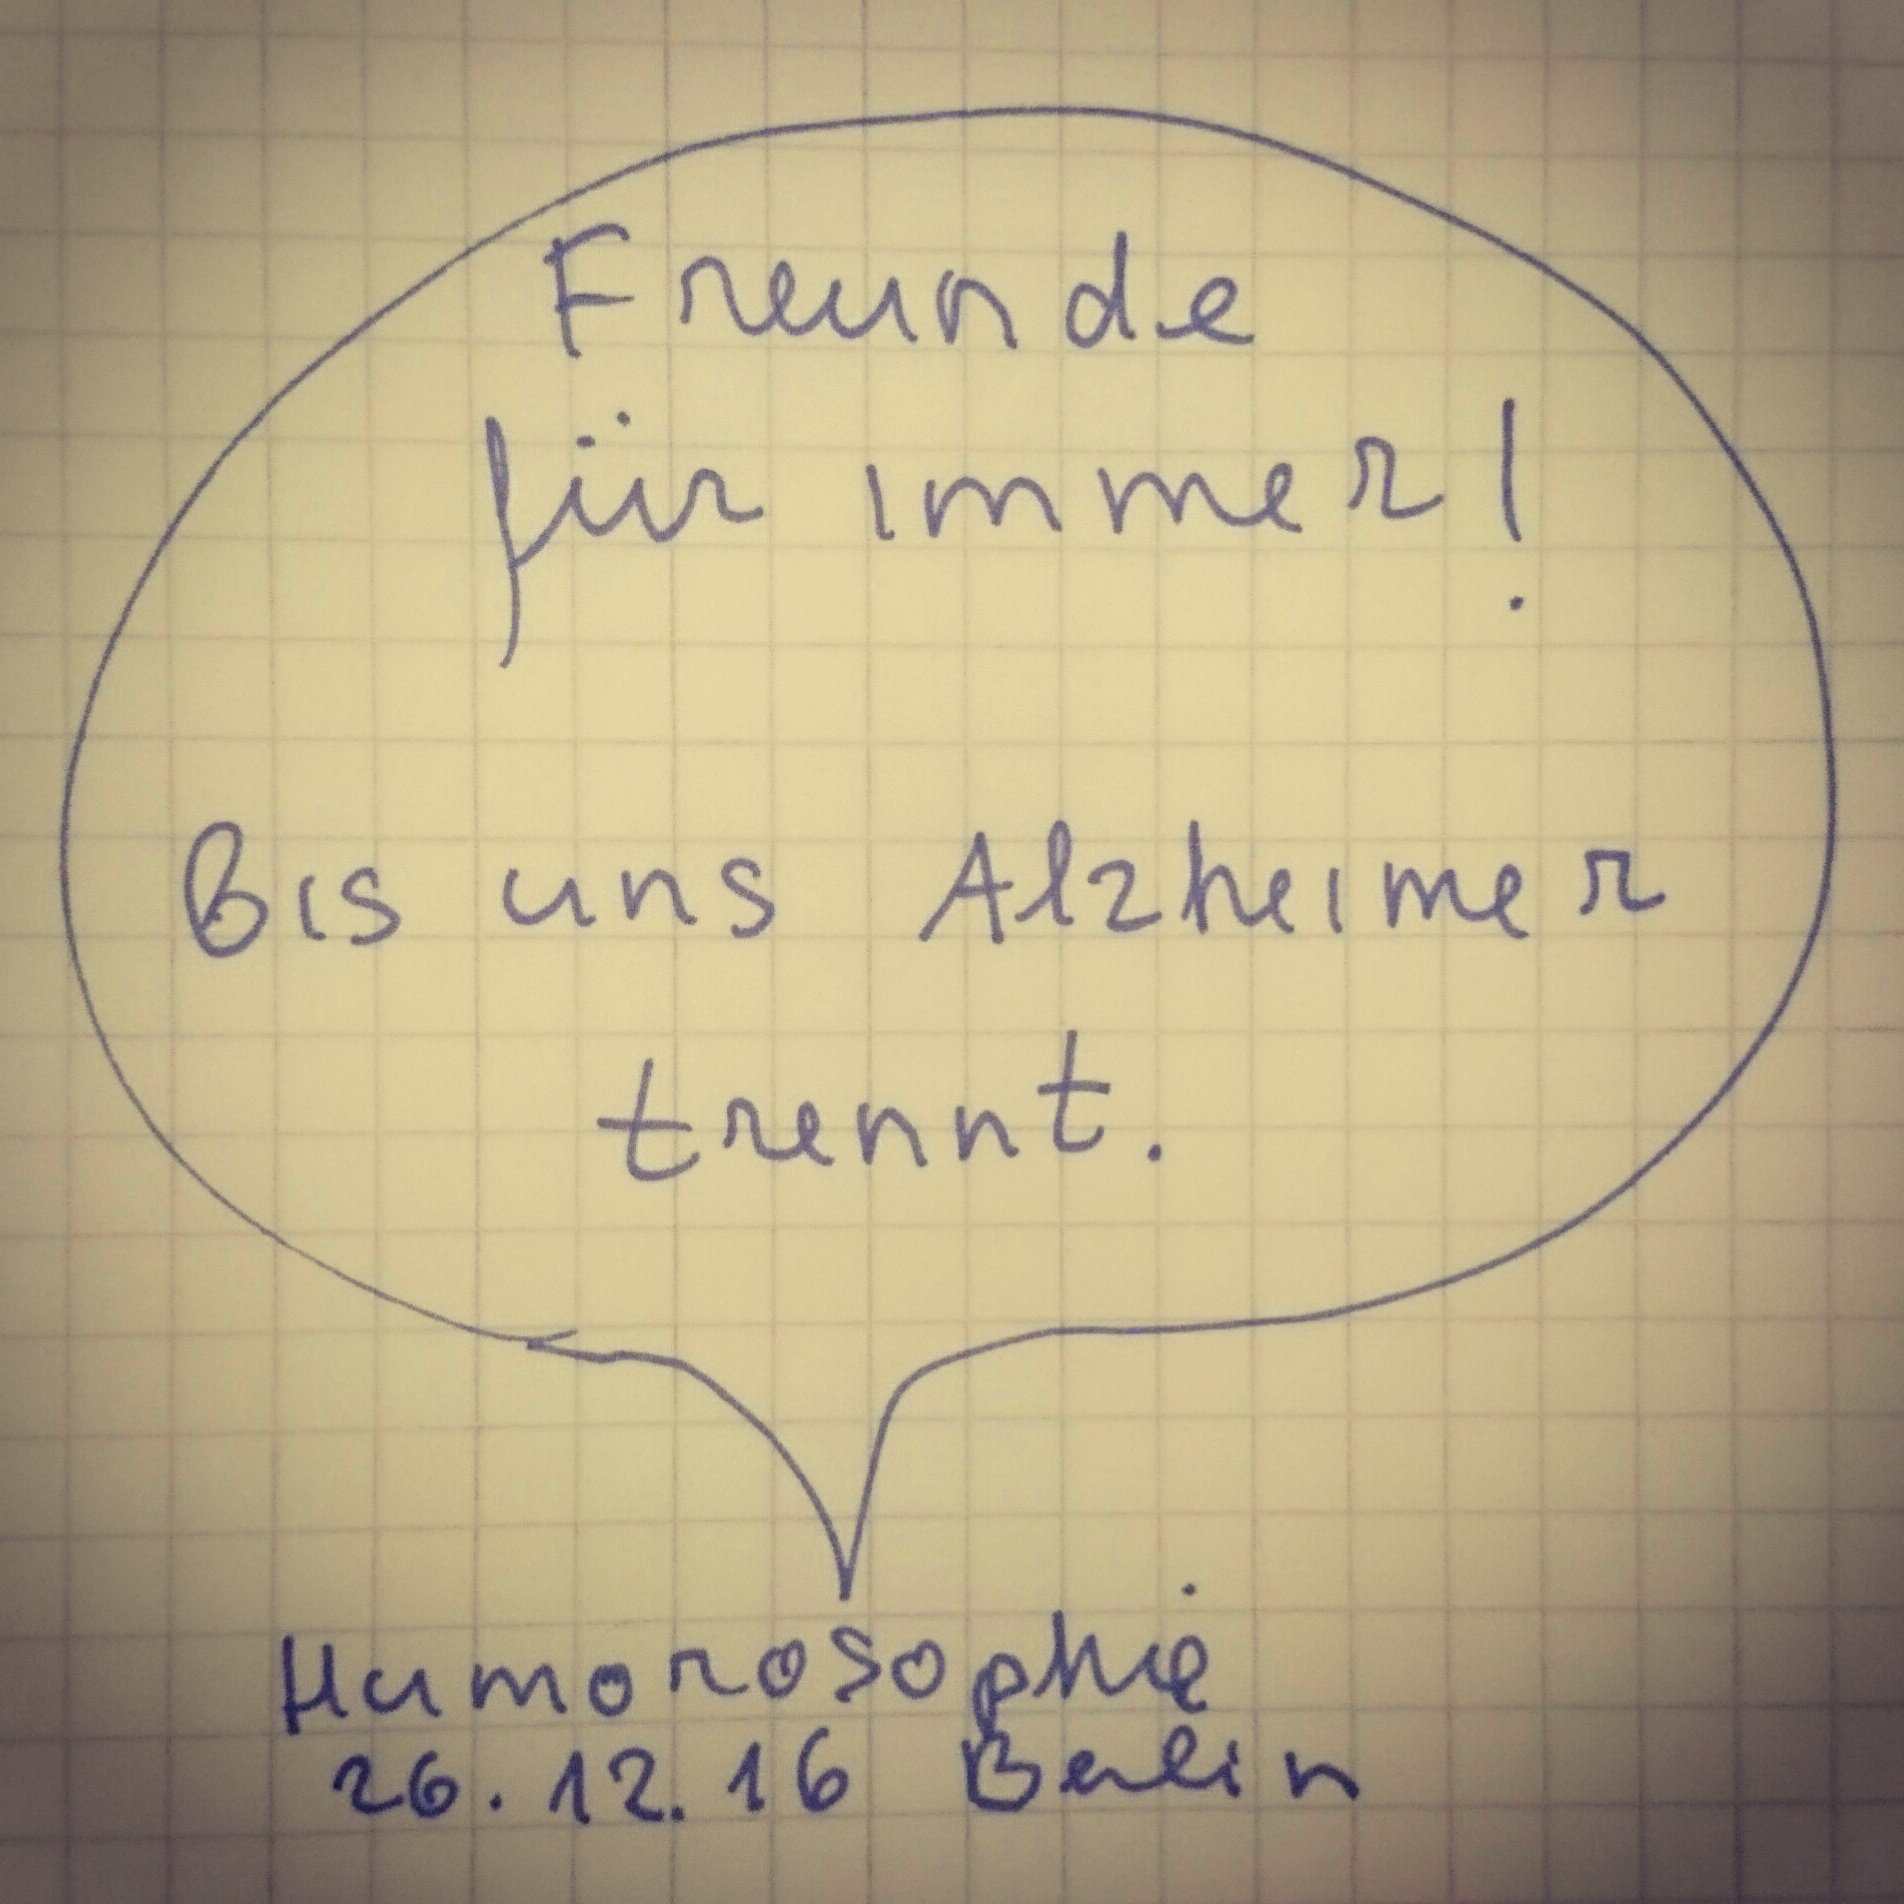 Freunde
für immer!
Bis uns Alzheimer
trennt.
Humorosophie
26.12.16 Berlin